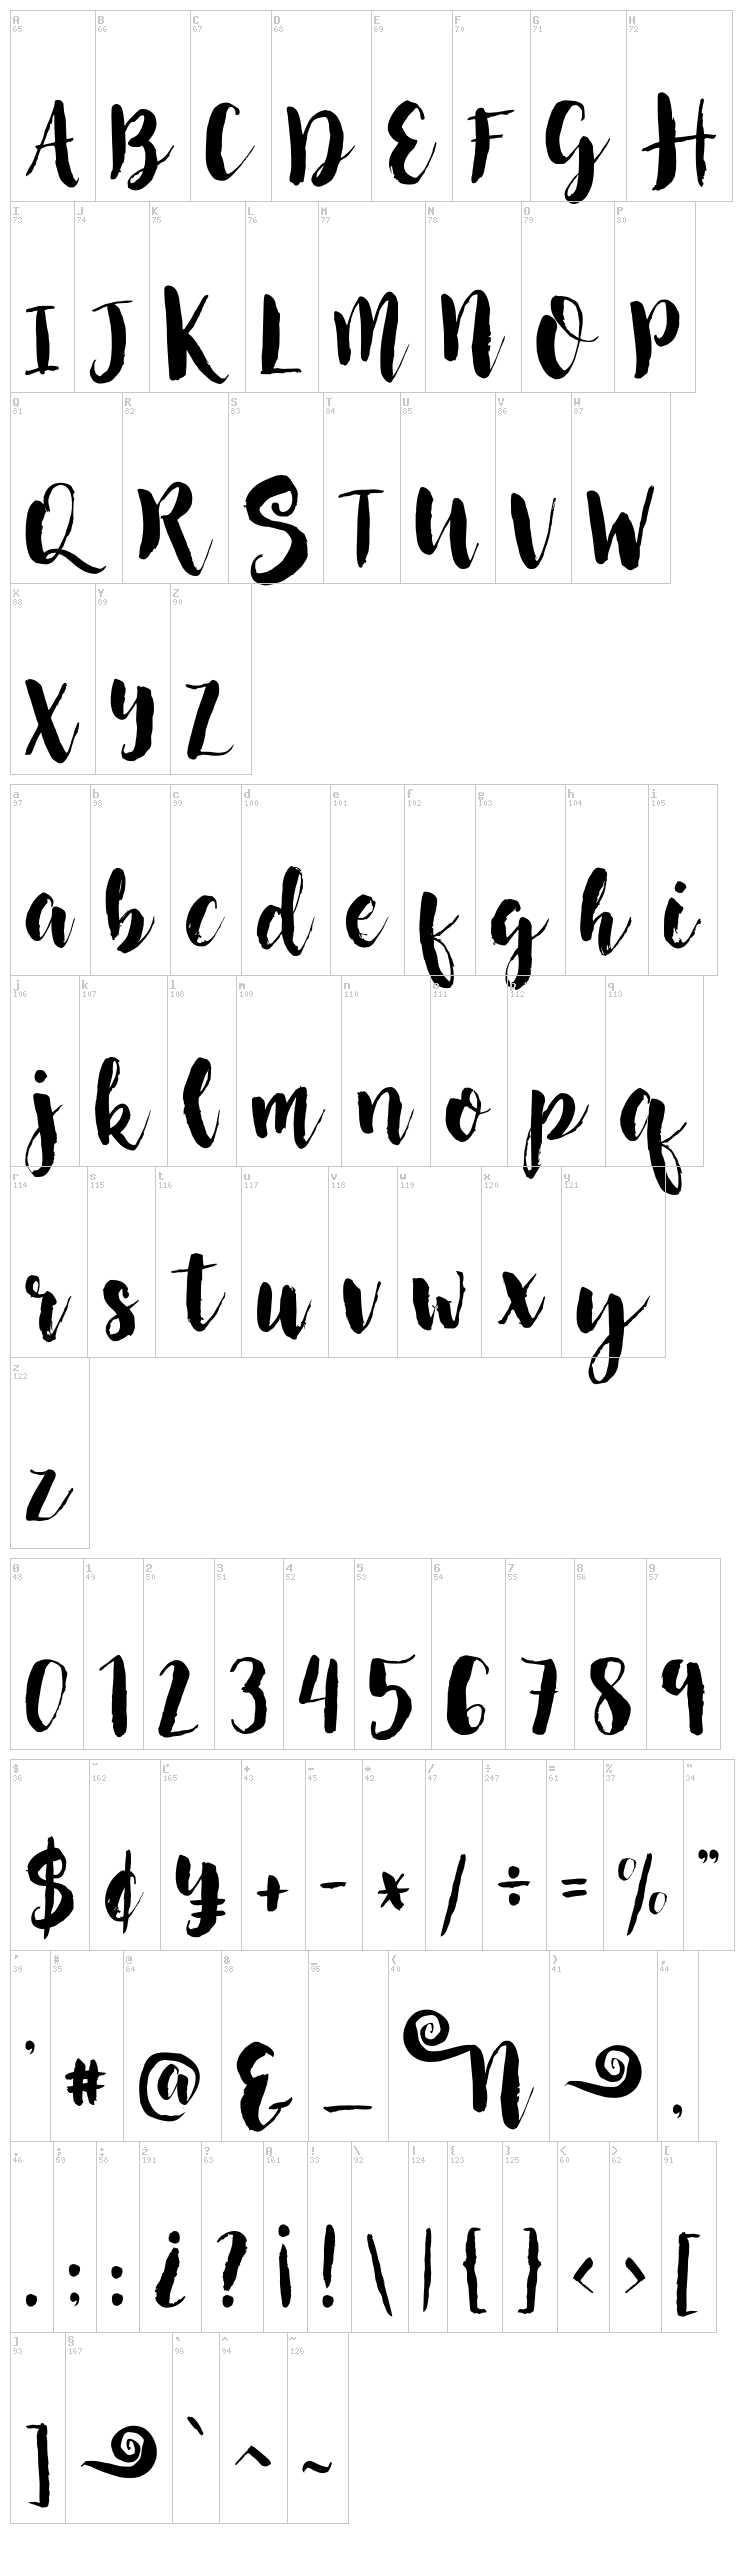 A B C D E F G H
65 66 67 68 69 70 71 72
A B C D E F G H
I J K L M N O P
73 74 75 76 77 78 79 80
I J K L M N O P
Q R S T U V W
81 82 83 84 85 86 87
Q R S T U V W
X Y Z
88 89 90
X Y Z
a b c d e f g h i
97 98 99 100 101 102 103 104 105
a b c d e f g h i
j k l m n o p q
106 107 108 109 110 111 112 113
j k l m n o p q
r s t u v w x y
114 115 116 117 118 119 120 121
r s t u v w x y
z
122
z
0 1 2 3 4 5 6 7 8 9
48 49 50 51 52 53 54 55 56 57
0 1 2 3 4 5 6 7 8 9
$ ˘ Ľ + - * / ÷ = % "
36 162 165 43 45 42 47 247 61 37 34
$ ¢ ¥ + - * / ÷ = % ”
' # @ & _ ( ) ,
39 35 64 38 95 40 41 44
’ # @ & _ N ,
. ; : ż ? Ą ! \ | { } < > [
46 59 58 191 63 161 33 92 124 123 125 60 62 91
. ; : ¿ ? ¡ ! \ | { } < > [
] § ` ^ ~
93 167 96 94 126
] ` ^ ~